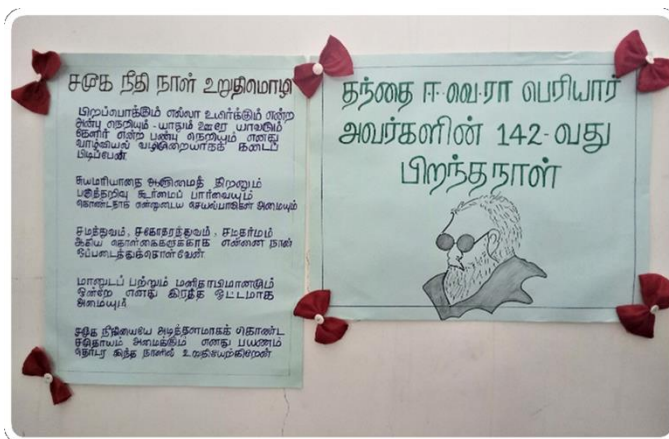 சமூக நீதி நாள் உறுதிமொழி
பிறப்பொக்கும் எல்லா உயிர்க்கும் என்ற
அன்பு நெறியும் - யாதும் ஊரே யாவரும்
கேளிர் என்ற பண்பு நெறியும் எனது
வாழ்வியல் வழிமுறையாகக் கடைப்
பிடிப்பேன்
சுயமரியாதை ஆளுமைத் திறனும்
பகுத்தறிவு கூர்மைப் பார்வையும்
கொண்டதாக என்னுடைய செயல்பாடுகள் அமையும்
சமத்துவம், சகோதரத்துவம், சமதர்மம்
ஆகிய கொள்கைகளுக்காக என்னை நான்
ஒப்படைத்துக்கொள்வேன்
மானுடப் பற்றும் மனிதாபிமானமும்
ஒன்றே எனது இரத்த ஓட்டமாக
அமையும்
சமூக நீதியையே அடித்தளமாகக் கொண்ட
சமுதாயம் அமைக்கும் எனது பயணம்
தொடர இந்த நாளில் உறுதியேற்கிறேன்
தந்தை ஈ.வெ.ரா பெரியார்
அவர்களின் 142-வது
பிறந்தநாள்